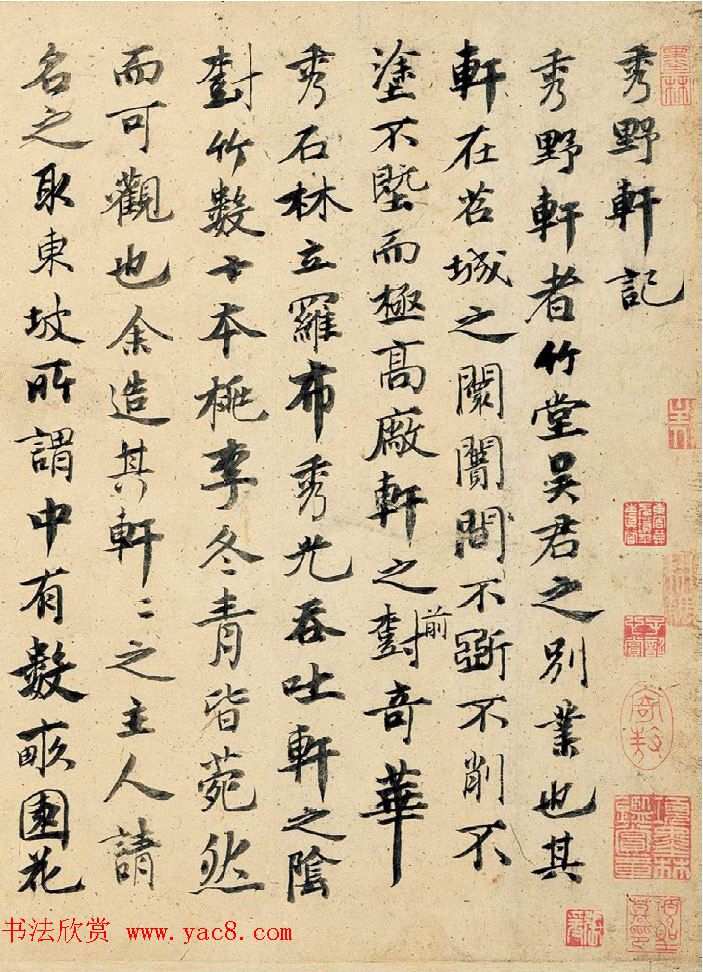 秀野軒記
秀野軒者竹堂吳君之別業也其
軒在苕城之闤闠間不斲不削不
塗不塈而極高廠軒之前對奇華
秀石林立羅布秀光吞吐軒之陰
對竹數十本桃李冬青皆菀然
而可觀也余造其軒〻之主人請
名之取東坡所謂中有數畝園花
书法欣赏 www.yac8.com